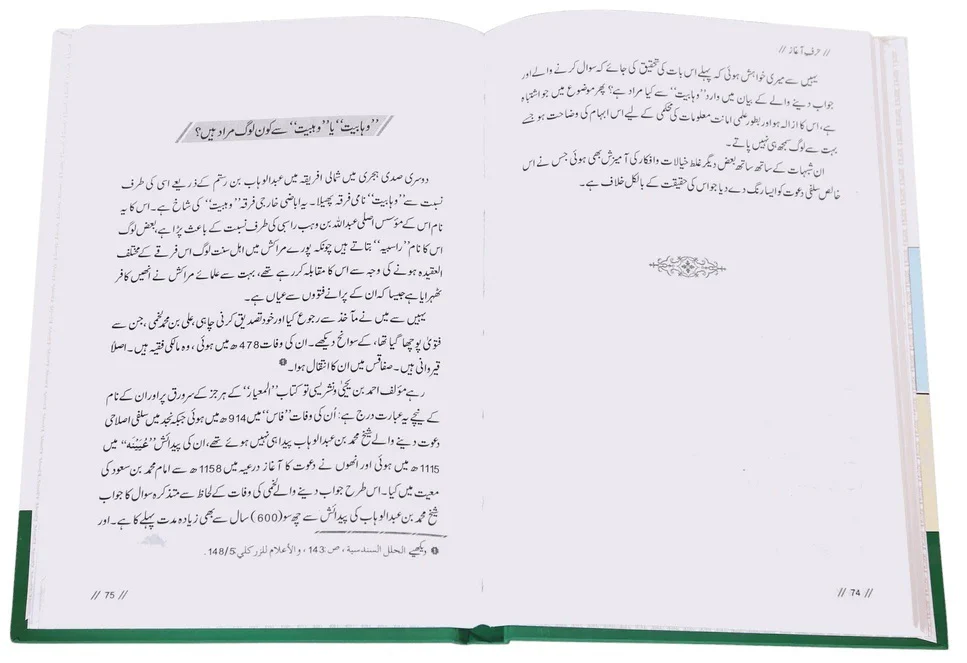 // حرف آغاز //
یہیں سے میری خواہش ہوئی کہ پہلے اس بات کی تحقیق کی جائے کہ سوال کرنے والے اور
جواب دینے والے کے بیان میں وارد ”وہابیت“ سے کیا مراد ہے؟ پھر موضوع میں جو اشتباہ
ہے، اس کا ازالہ ہو اور بطور علمی امانت معلومات کی محکمی کے لیے اس ابہام کی وضاحت ہو جسے
بہت سے لوگ سمجھ ہی نہیں پاتے۔
ان شبہات کے ساتھ ساتھ بعض دیگر غلط خیالات و افکار کی آمیزش بھی ہوئی جس نے اس
خالص سلفی دعوت کو ایسا رنگ دے دیا جو اس کی حقیقت کے بالکل خلاف ہے۔
// 74 //
”وہابیت“ یا ”وہبیت“ سے کون لوگ مراد ہیں؟
دوسری صدی ہجری میں شمالی افریقہ میں عبدالوہاب بن رستم کے ذریعے اسی کی طرف
نسبت سے ”وہابیت“ نامی فرقہ پھیلا۔ یہ اباضی خارجی فرقہ ”وہبیت“ کی شاخ ہے۔ اس کا یہ
نام اس کے مؤسس اصلی عبداللہ بن وہب راسبی کی طرف نسبت کے باعث پڑا ہے، بعض لوگ
اس کا نام ”راسبیہ“ بتاتے ہیں چونکہ پورے مراکش میں اہل سنت لوگ اس فرقے کے مختلف
العقیدہ ہونے کی وجہ سے اس کا مقابلہ کر رہے تھے، بہت سے علمائے مراکش نے انھیں کافر
ٹھہرایا ہے جیسا کہ ان کے پرانے فتووں سے عیاں ہے۔
یہیں سے میں نے مآخذ سے رجوع کیا اور خود تصدیق کرنی چاہی، علی بن محمد لخمی، جن سے
فتویٰ پوچھا گیا تھا، کے سوانح دیکھے۔ ان کی وفات 478 ھ میں ہوئی، وہ مالکی فقیہ ہیں۔ اصلاً
قیروانی ہیں۔ صفاقس میں ان کا انتقال ہوا۔❶
رہے مؤلف احمد بن یحییٰ ونشریسی تو کتاب ”المعیار“ کے ہر جز کے سرورق پر اور ان کے نام
کے نیچے یہ عبارت درج ہے: اُن کی وفات ”فاس“ میں 914 ھ میں ہوئی جبکہ نجد میں سلفی اصلاحی
دعوت دینے والے شیخ محمد بن عبدالوہاب پیدا ہی نہیں ہوئے تھے، ان کی پیدائش ”عُیَیْنَه“ میں
1115 ھ میں ہوئی اور انھوں نے دعوت کا آغاز درعیہ میں 1158 ھ سے امام محمد بن سعود کی
معیت میں کیا۔ اس طرح جواب دینے والے لخمی کی وفات کے لحاظ سے متذکرہ سوال کا جواب
شیخ محمد بن عبدالوہاب کی پیدائش سے چھ سو (600) سال سے بھی زیادہ مدت پہلے کا ہے۔ اور
❶ دیکھیے الحلل السندسية ، ص: 143 ، والأعلام للزركلي: 148/5.
// 75 //